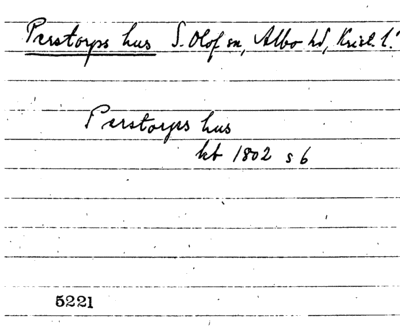 Perstorps hus S. Olof sn, Albo hd, Krist. l.
Perstorps hus
kb 1802 s 6
5221